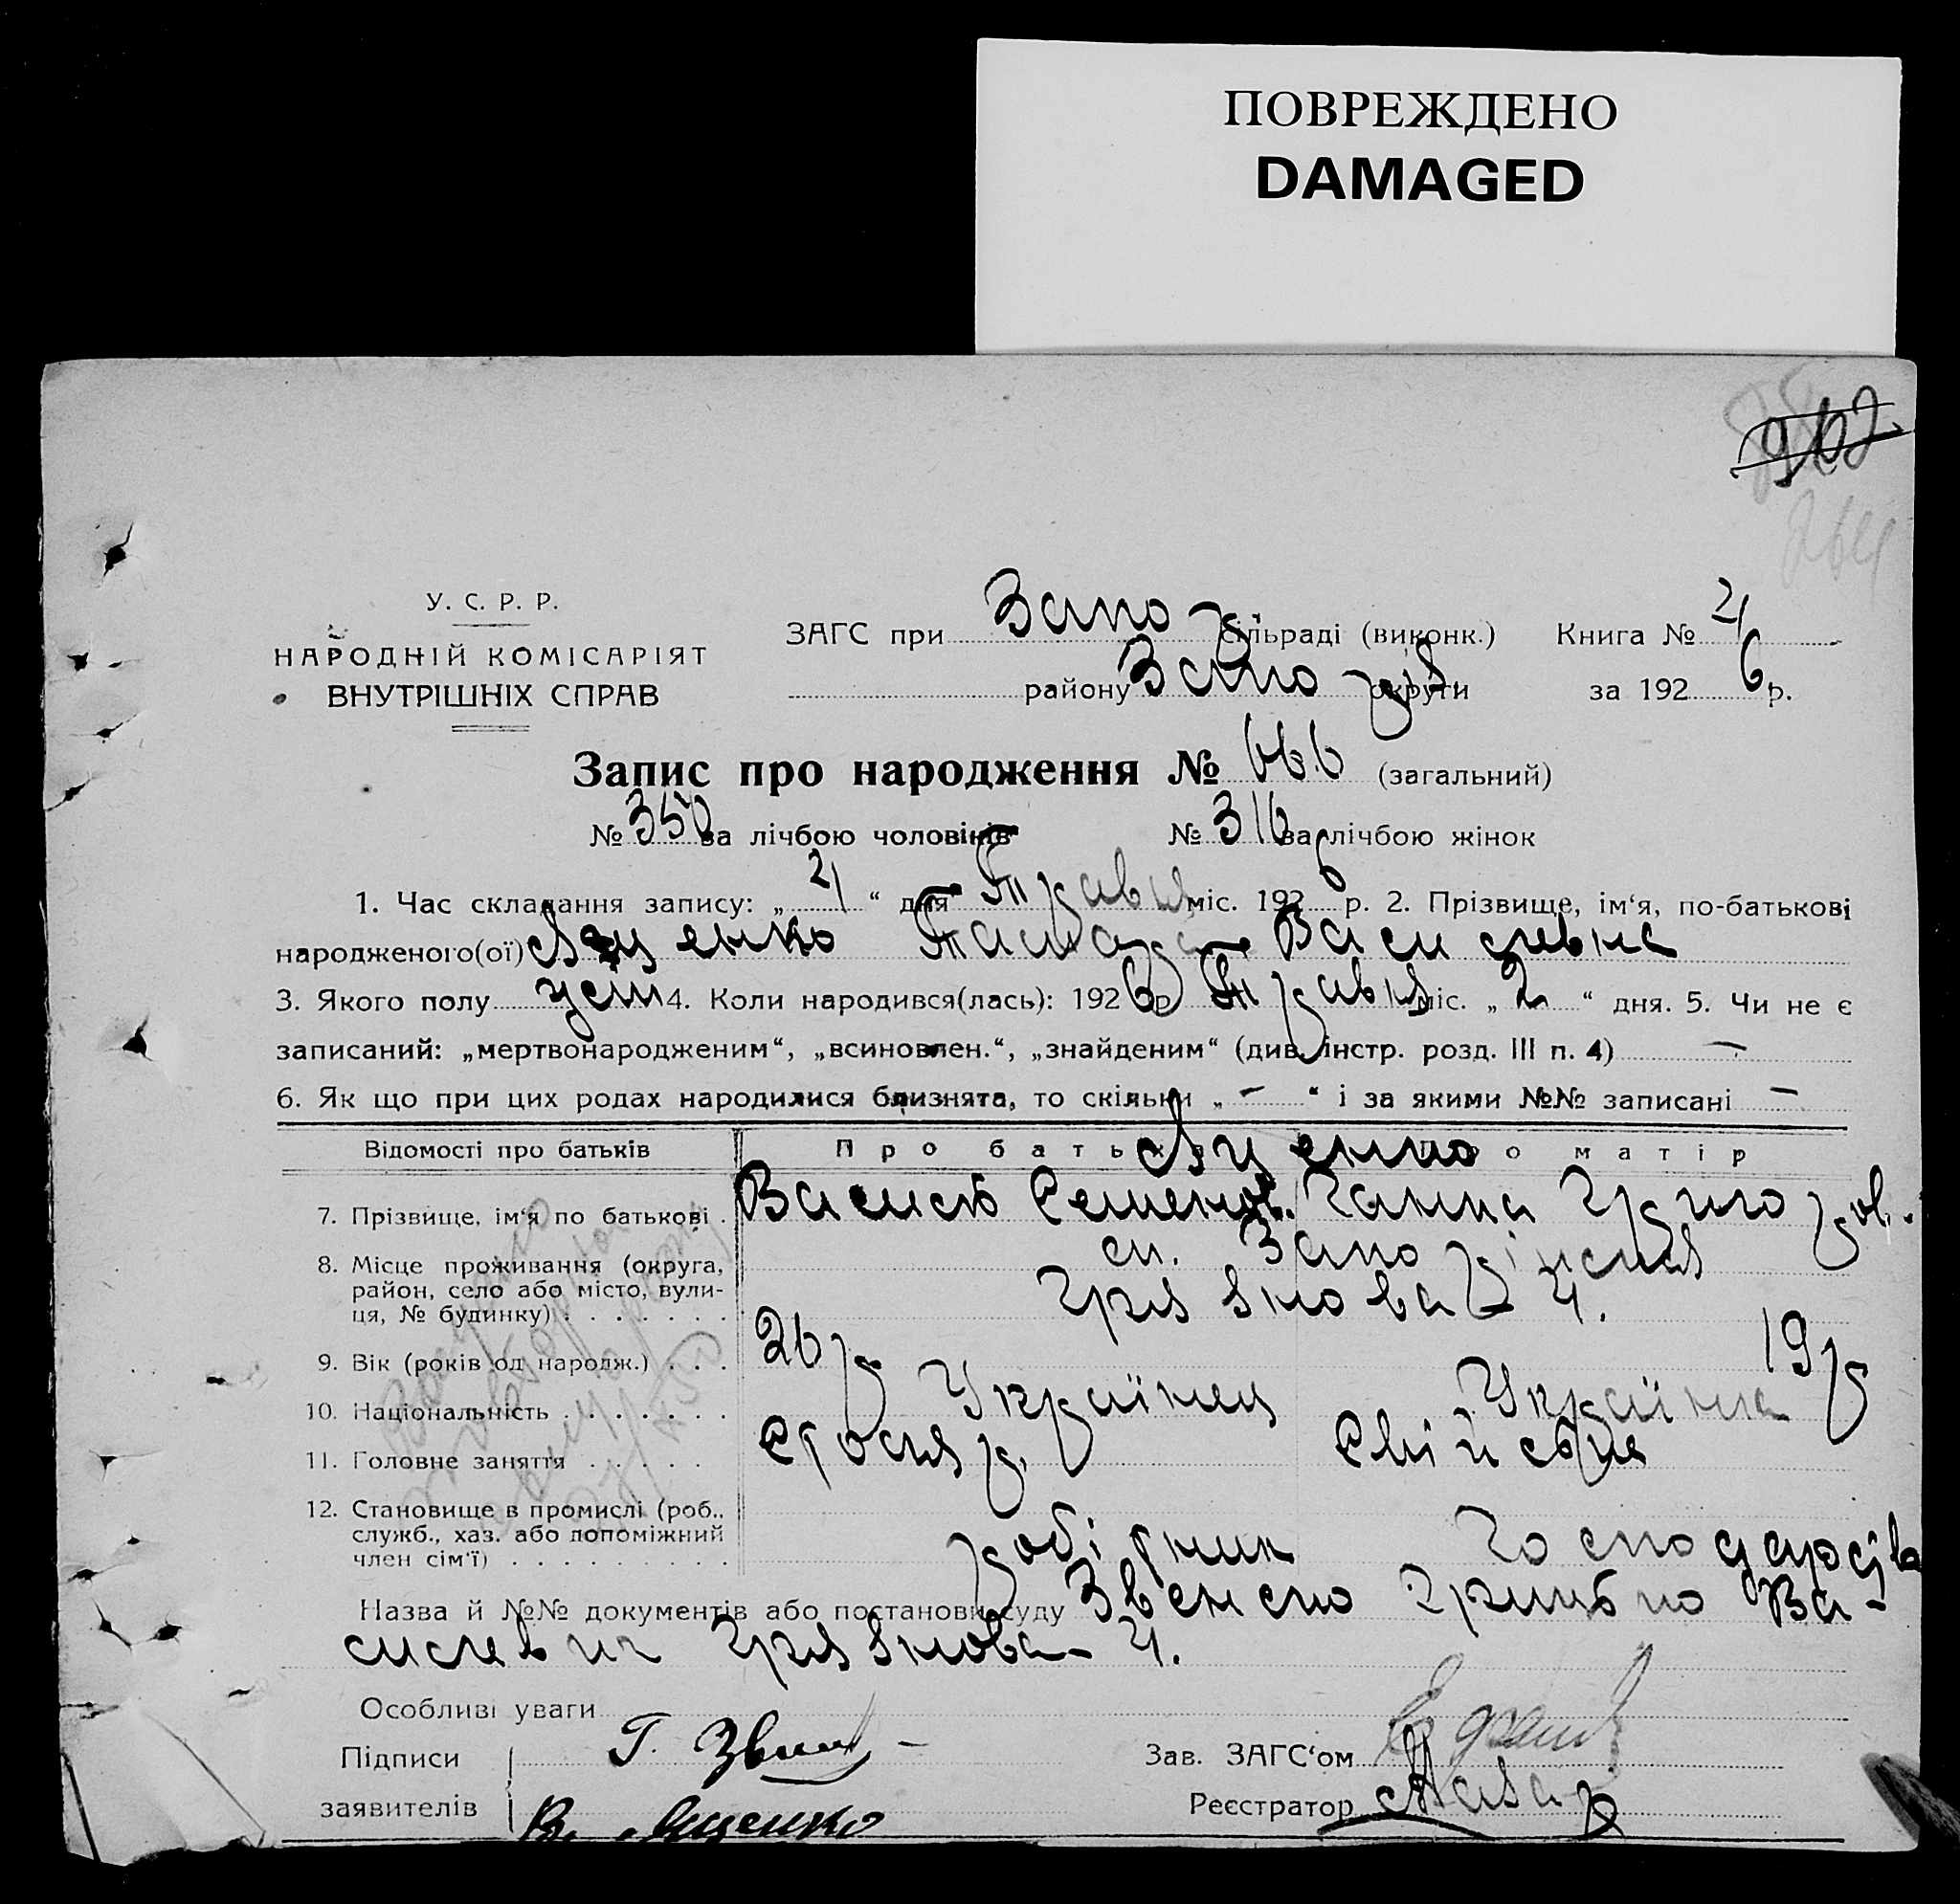 ПОВРЕЖДЕНО
DAMAGED
У. С. Р. Р.
НАРОДНІЙ КОМІСАРІЯТ
ВНУТРІШНІХ СПРАВ
ЗАГС при Запоріз сільраді (виконк.) Книга №
району Запоріз округи за 1926 р.
Запис про народження № 666 (загальний)
№ 350 за лічбою чоловіків № 316 за лічбою жінок
1. Час складання запису: „ “ дня Травня міс. 1926 р. 2. Прізвище, ім‘я, по-батькові
народженого(ої) Яценко Тамара Василевна
3. Якого полу жен 4. Коли народився(лась): 1926 р Травня міс. „ 2 “ дня. 5. Чи не є
записаний: „мертвонародженим“, „всиновлен.“, „знайденим“ (див. інстр. розд. III п. 4) —
6. Як що при цих родах народилися близнята, то скільки „ — “ і за якими №№ записані —
Відомості про батьків Про батька Про матір
Яценко
7. Прізвище, ім‘я по батькові . Василь Семенов. Ганна Григоров.
8. Місце проживання (округа, ст. Запоріжжя
район, село або місто, вули-
ця, № будинку) . . . . . . . Грязнова 4.
9. Вік (років од народж.) . . . 26 р 19 р
10. Національність . . . . . . . Українец Українка
11. Головне заняття . . . . . Столяр.
12. Становище в промислі (роб..
служб., хаз. або допоміжний
член сім‘ї) . . . . . . . . . робітник господарств
Назва й №№ документів або постанови суду по Ва-
силевич Грязнова 4.
Особливі уваги
Підписи Г.
Зав. ЗАГС‘ом
заявителів В. Яценко
Реєстратор